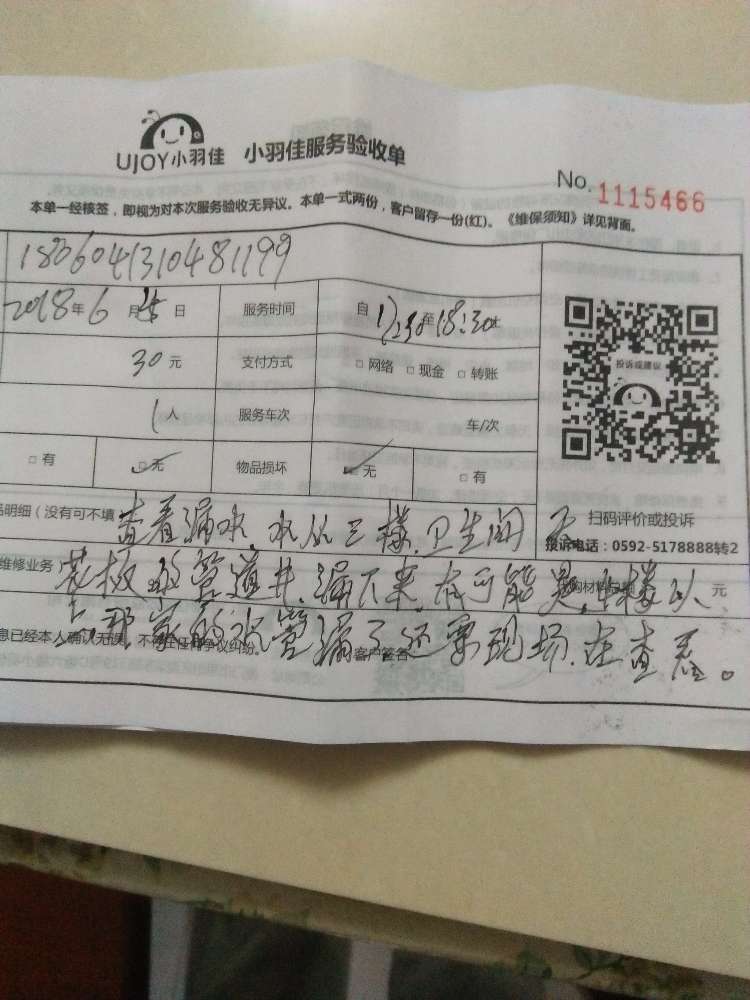 UJOY小羽佳 小羽佳服务验收单
No. 1115466
本单一经核签，即视为对本次服务验收无异议。本单一式两份，客户留存一份(红)。《维保须知》详见背面。
1806041310481199
2018年6月 日 服务时间 自 至18:30止
30元 支付方式 □网络 □现金 □转账
1人 服务车次 车/次
□有 □无 物品损坏 □无 □有
投诉或建议
扫码评价或投诉
投诉电话：0592-5178888转2
品明细（没有可不填 查看漏水.水从三楼.卫生间天
维修业务 花板的管道井.漏下来.有可能是 楼以 元
上那家的水管漏了还需现场.在查看。
息已经本人确认无误，不存在任何争议纠纷。 客户签名